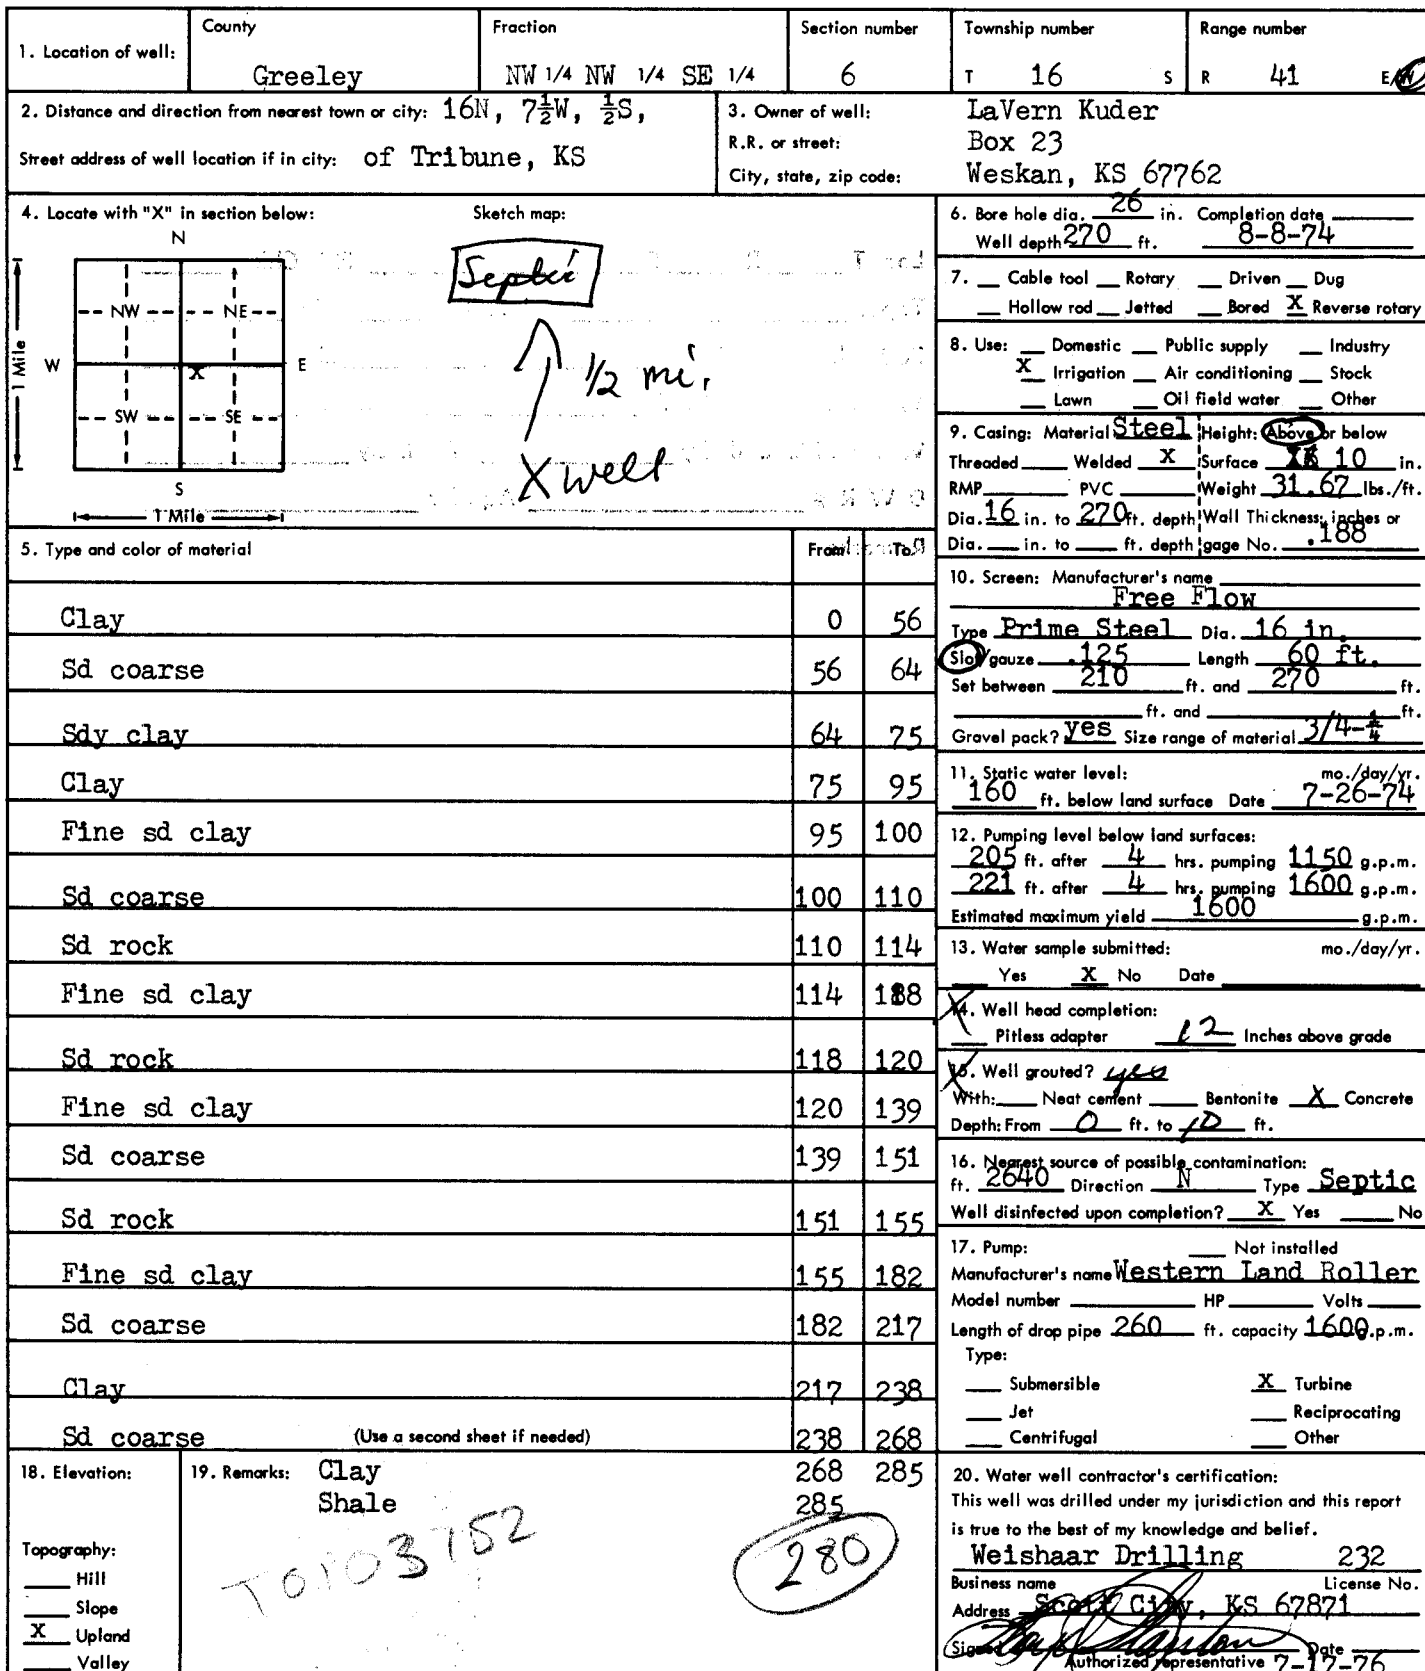 1. Location of well: County Greeley Fraction NW 1/4 NW 1/4 SE 1/4 Section number 6 Township number T 16 S Range number R 41 E/W
2. Distance and direction from nearest town or city: 16N, 7½W, ½S,
Street address of well location if in city: of Tribune, KS
3. Owner of well: LaVern Kuder
R.R. or street: Box 23
City, state, zip code: Weskan, KS 67762
4. Locate with "X" in section below: Sketch map:
N
NW NE
W X E
SW SE
S
1 Mile
1 Mile
Septic
1/2 mi.
X well
5. Type and color of material From To
Clay 0 56
Sd coarse 56 64
Sdy clay 64 75
Clay 75 95
Fine sd clay 95 100
Sd coarse 100 110
Sd rock 110 114
Fine sd clay 114 118
Sd rock 118 120
Fine sd clay 120 139
Sd coarse 139 151
Sd rock 151 155
Fine sd clay 155 182
Sd coarse 182 217
Clay 217 238
Sd coarse (Use a second sheet if needed) 238 268
6. Bore hole dia. 26 in. Completion date
Well depth 270 ft. 8-8-74
7. Cable tool Rotary Driven Dug
Hollow rod Jetted Bored X Reverse rotary
8. Use: Domestic Public supply Industry
X Irrigation Air conditioning Stock
Lawn Oil field water Other
9. Casing: Material Steel Height: Above or below
Threaded Welded X Surface 10 in.
RMP PVC Weight 31.67 lbs./ft.
Dia. 16 in. to 270 ft. depth Wall Thickness: inches or
Dia. in. to ft. depth gage No. .188
10. Screen: Manufacturer's name
Free Flow
Type Prime Steel Dia. 16 in.
Slot/gauze .125 Length 60 ft.
Set between 210 ft. and 270 ft.
ft. and ft.
Gravel pack? yes Size range of material 3/4-¼
11. Static water level: mo./day/yr.
160 ft. below land surface Date 7-26-74
12. Pumping level below land surfaces:
205 ft. after 4 hrs. pumping 1150 g.p.m.
221 ft. after 4 hrs. pumping 1600 g.p.m.
Estimated maximum yield 1600 g.p.m.
13. Water sample submitted: mo./day/yr.
Yes X No Date
14. Well head completion:
Pitless adapter 12 Inches above grade
15. Well grouted? yes
With: Neat cement Bentonite X Concrete
Depth: From 0 ft. to 10 ft.
16. Nearest source of possible contamination:
ft. 2640 Direction N Type Septic
Well disinfected upon completion? X Yes No
17. Pump: Not installed
Manufacturer's name Western Land Roller
Model number HP Volts
Length of drop pipe 260 ft. capacity 1600 g.p.m.
Type:
Submersible X Turbine
Jet Reciprocating
Centrifugal Other
18. Elevation:
Topography:
Hill
Slope
X Upland
Valley
19. Remarks: Clay 268 285
Shale 285
T0103752
280
20. Water well contractor's certification:
This well was drilled under my jurisdiction and this report
is true to the best of my knowledge and belief.
Weishaar Drilling 232
Business name License No.
Address Scott City, KS 67871
Signed Date
Authorized representative 7-17-76